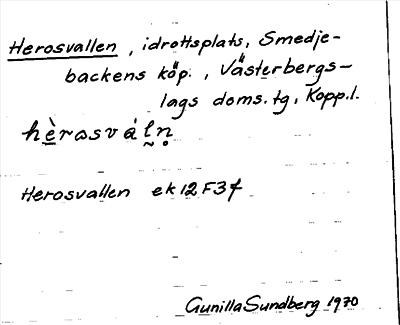 Herosvallen, idrottsplats, Smedje-
backens köp., Västerbergs-
lags doms. tg, Kopp.l.
hè̱rosvál̰n̥
Herosvallen ek 12 F3f
Gunilla Sundberg 1970